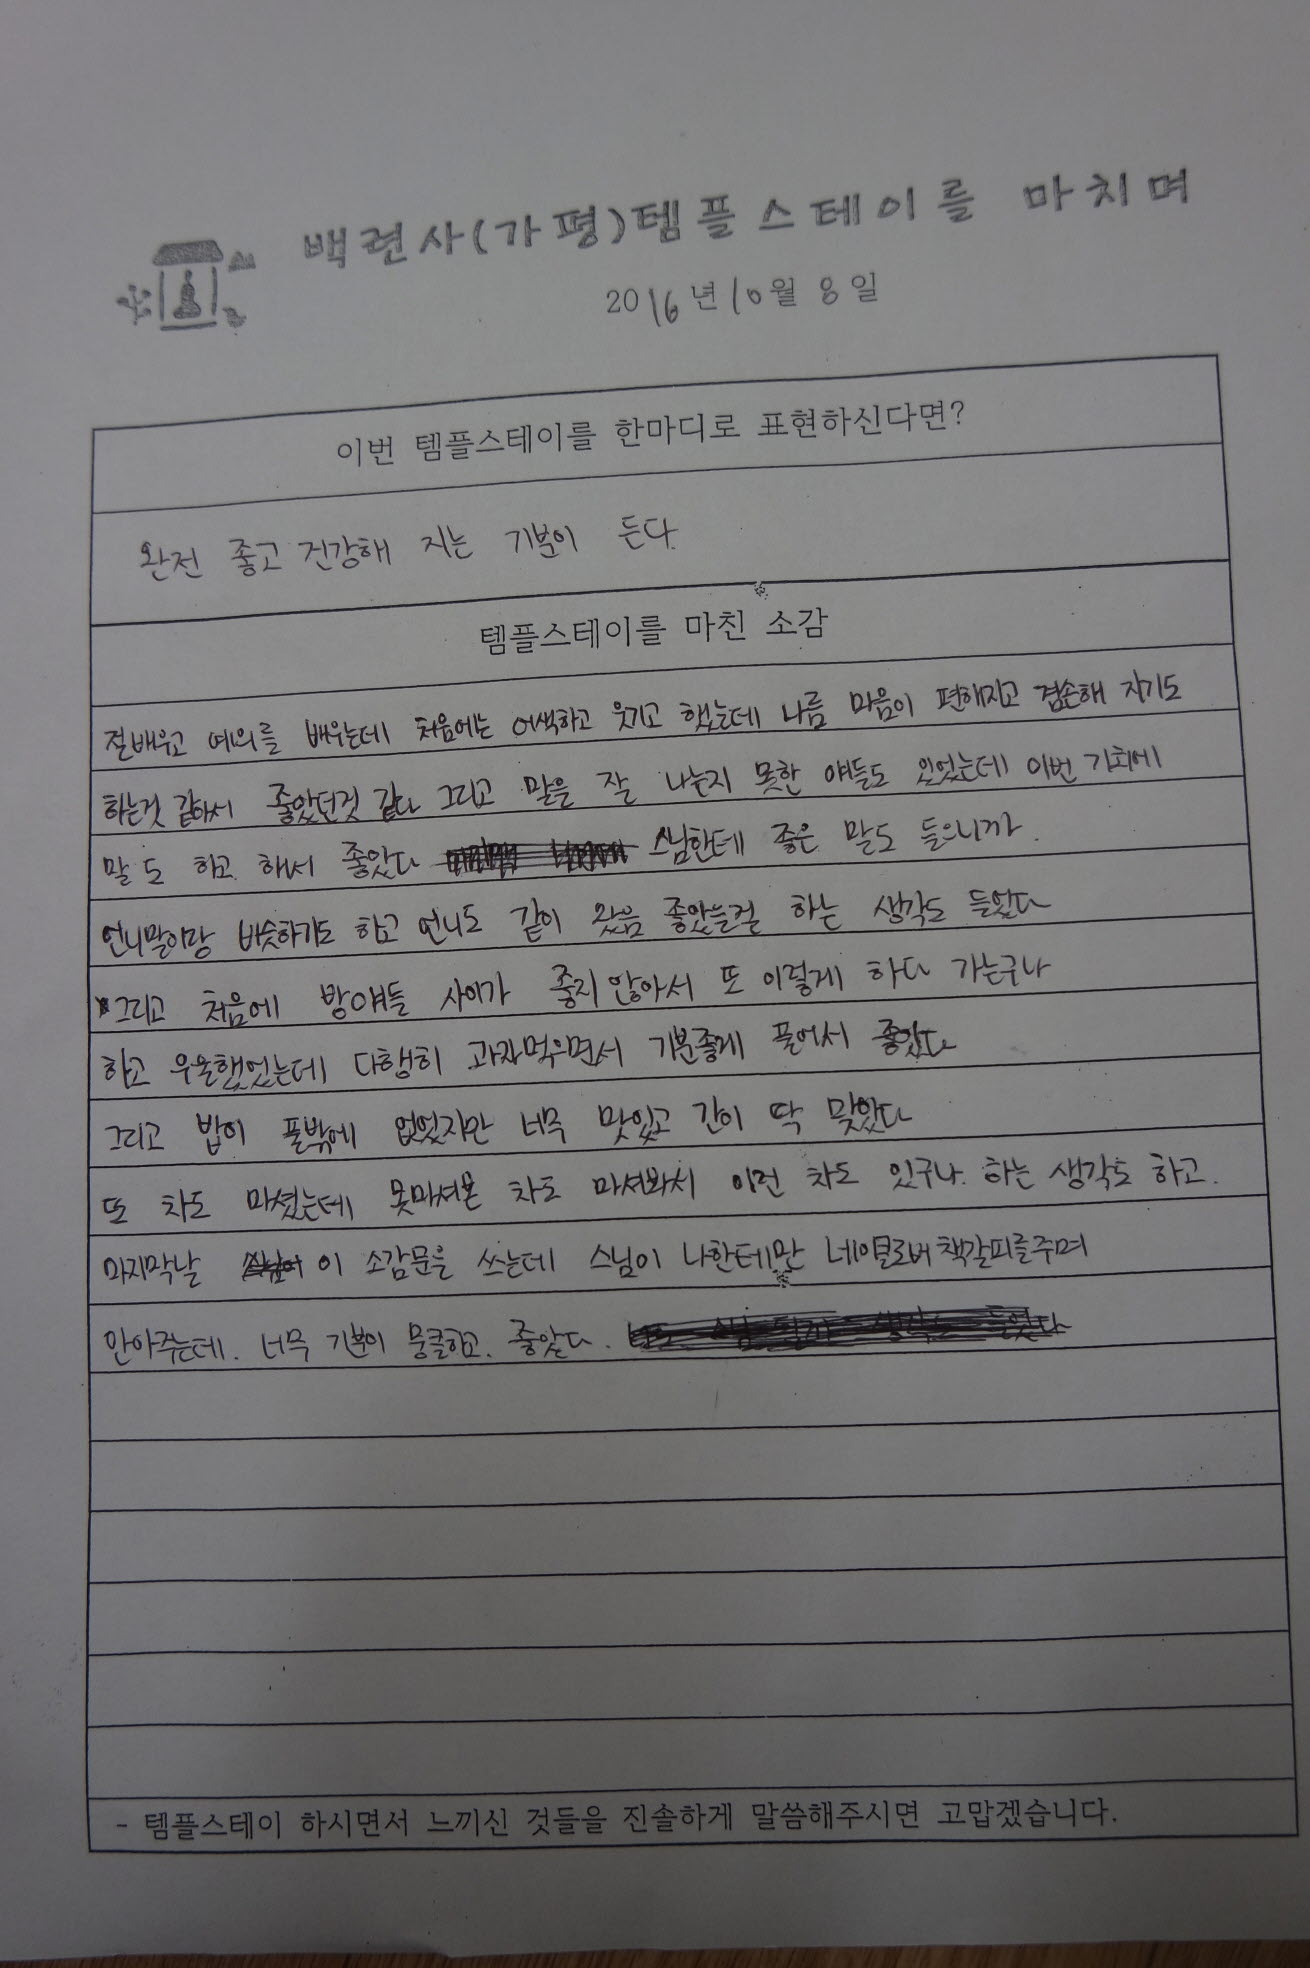 백련사(가평)템플스테이를 마치며
2016년 10월 8일
이번 템플스테이를 한마디로 표현하신다면?
완전 좋고 건강해 지는 기분이 든다.
템플스테이를 마친 소감
절배우고 예의를 배우는데 처음에는 어색하고 웃기고 했는데 나름 마음이 편해지고 겸손해 지기도
하는것 같아서 좋았던것 같다 그리고 말을 잘 나눈지 못한 얘들도 있었는데 이번 기회에
말도 하고 해서 좋았다 스님한테 좋은 말도 들으니까
언니말이랑 비슷하기도 하고 언니도 같이 왔음 좋았을걸 하는 생각도 들었다
그리고 처음에 방얘들 사이가 좋지 않아서 또 이렇게 하다 가는구나
하고 우울했었는데 다행히 과자먹으면서 기분좋게 풀어서 좋았다
그리고 밥이 풀밖에 없었지만 너무 맛있고 간이 딱 맞았다
또 차도 마셨는데 못마셔본 차도 마셔봐서 이런 차도 있구나. 하는 생각도 하고.
마지막날 이 소감문을 쓰는데 스님이 나한테만 네잎클로버 책갈피를주며
안아주는데. 너무 기분이 뭉클하고. 좋았다.
- 템플스테이 하시면서 느끼신 것들을 진솔하게 말씀해주시면 고맙겠습니다.